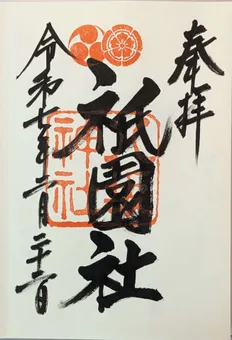 奉拝
祇園社
令和七年二月二十二日
神社